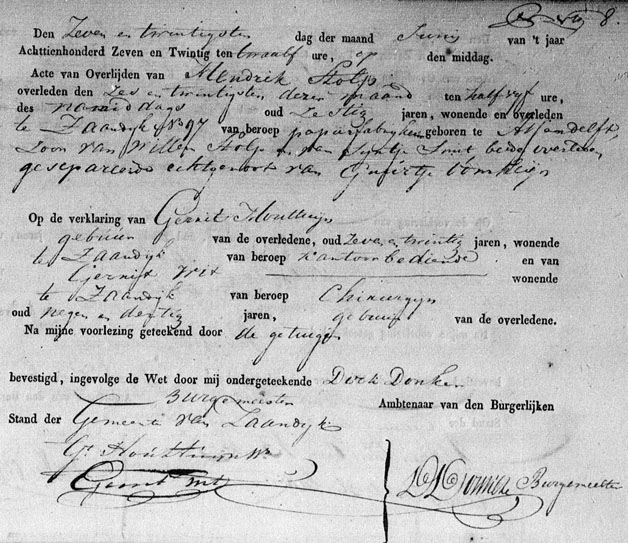 8.
Den Zeven en twintigsten dag der maand Juny van 't jaar
Achttienhonderd Zeven en Twintig ten twaalf ure, op den middag.
Acte van Overlijden van Hendrik Stolp
overleden den Zes en twintigsten dezer maand ten half vyf ure,
des namiddags oud Zestig jaren, wonende en overleden
te Zaandyk No 97 van beroep papierfabryker geboren te Assendelft,
Zoon van Willem Stolp en van Smit beide overleden,
gesepareerde echtgenoot van Guurtje
Op de verklaring van Gerrit Houttuyn
gebuur van de overledene, oud Zeven en twintig jaren, wonende
te Zaandyk van beroep Kantoorbediende en van
Gerrit Mit wonende
te Zaandyk van beroep Chirurgyn
oud negen en dertig jaren, gebuur van de overledene.
Na mijne voorlezing geteekend door de getuigen
bevestigd, ingevolge de Wet door mij ondergeteekende Dirk Donker
Burgemeester Ambtenaar van den Burgerlijken
Stand der Gemeente van Zaandyk
Gt Houttuyn Wz
Gerrit Mit
D Donker Burgemeester